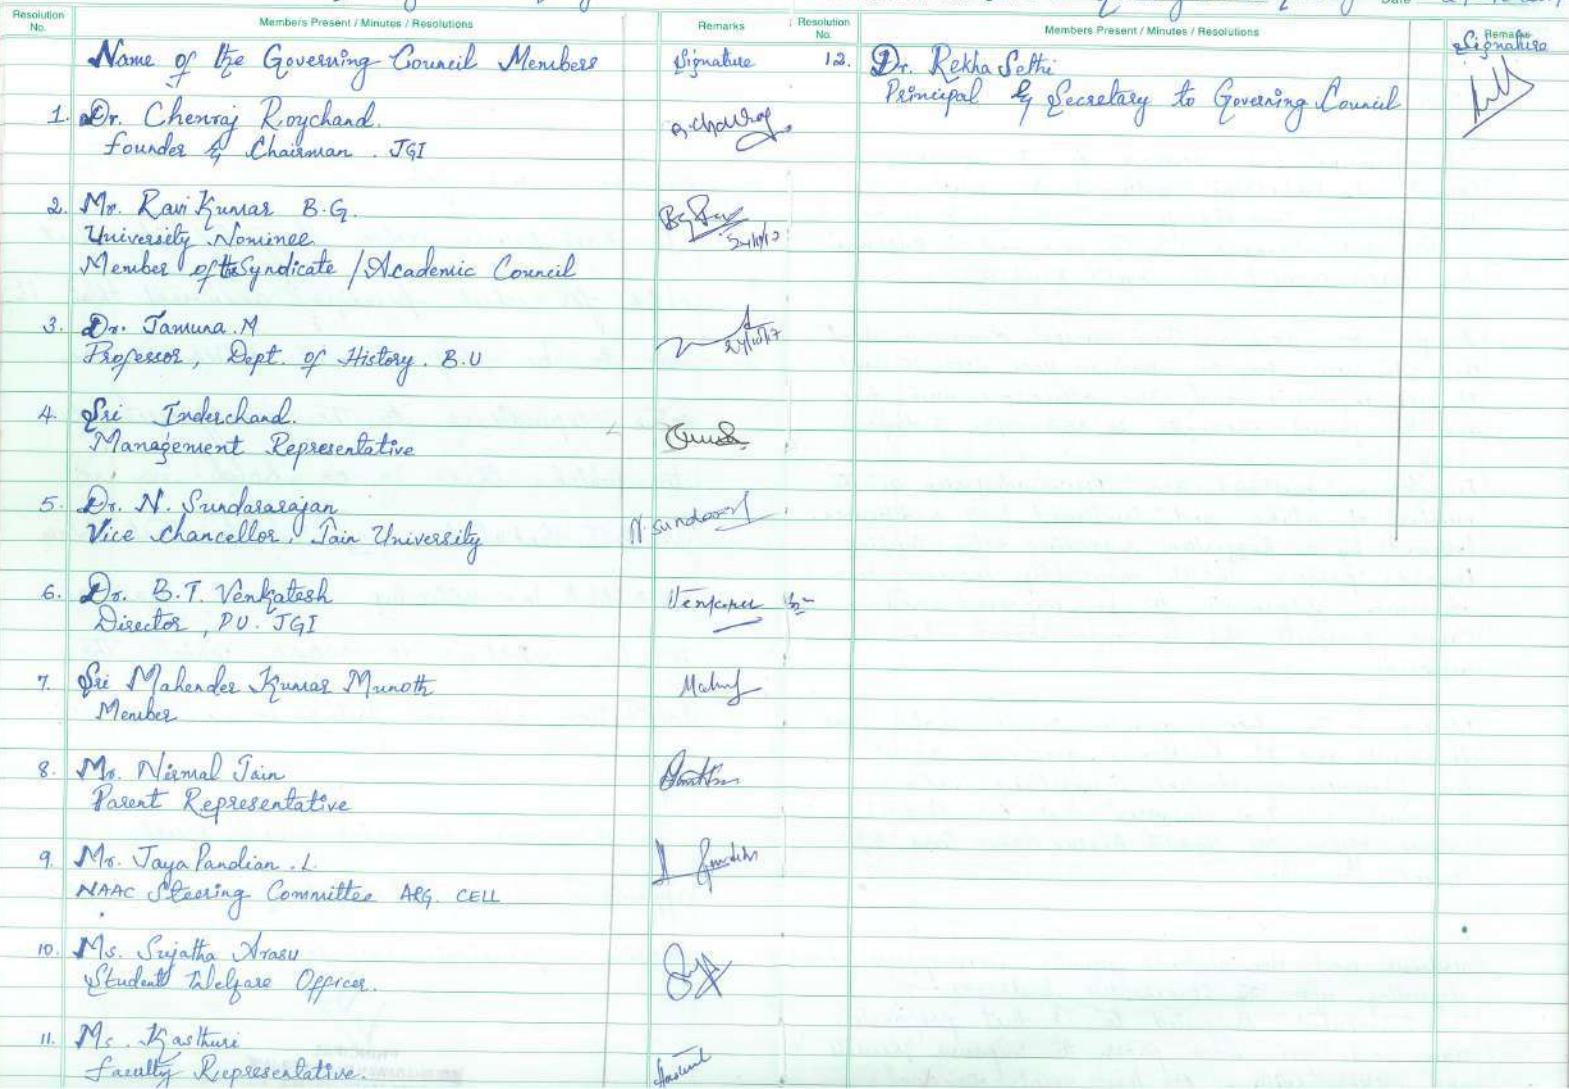 Resolution No.
Members Present / Minutes / Resolutions
Remarks
Name of the Governing Council Members
Signature
1. Dr. Chenraj Roychand.
Founder & Chairman . JGI
2. Mr. Ravi Kumar B.G.
University Nominee
Member of the Syndicate / Academic Council
3. Dr. Jamuna .M
Professor, Dept. of History. B.U
24/10/17
4. Sri Inderchand.
Management Representative
5. Dr. N. Sundararajan
Vice Chancellor, Jain University
N. Sundar
6. Dr. B.T. Venkatesh
Director, PU. JGI
7. Sri Mahender Kumar Munoth
Member
8. Mr. Nirmal Jain
Parent Representative
9. Mr. Jaya Pandian .L
NAAC Steering Committee ARG. CELL
10. Ms. Sujatha Arasu
Student Welfare Officer.
11. Ms. Kasthuri
Faculty Representative.
Date
Resolution No.
Members Present / Minutes / Resolutions
Remarks
Signature
12. Dr. Rekha Sethi
Principal & Secretary to Governing Council